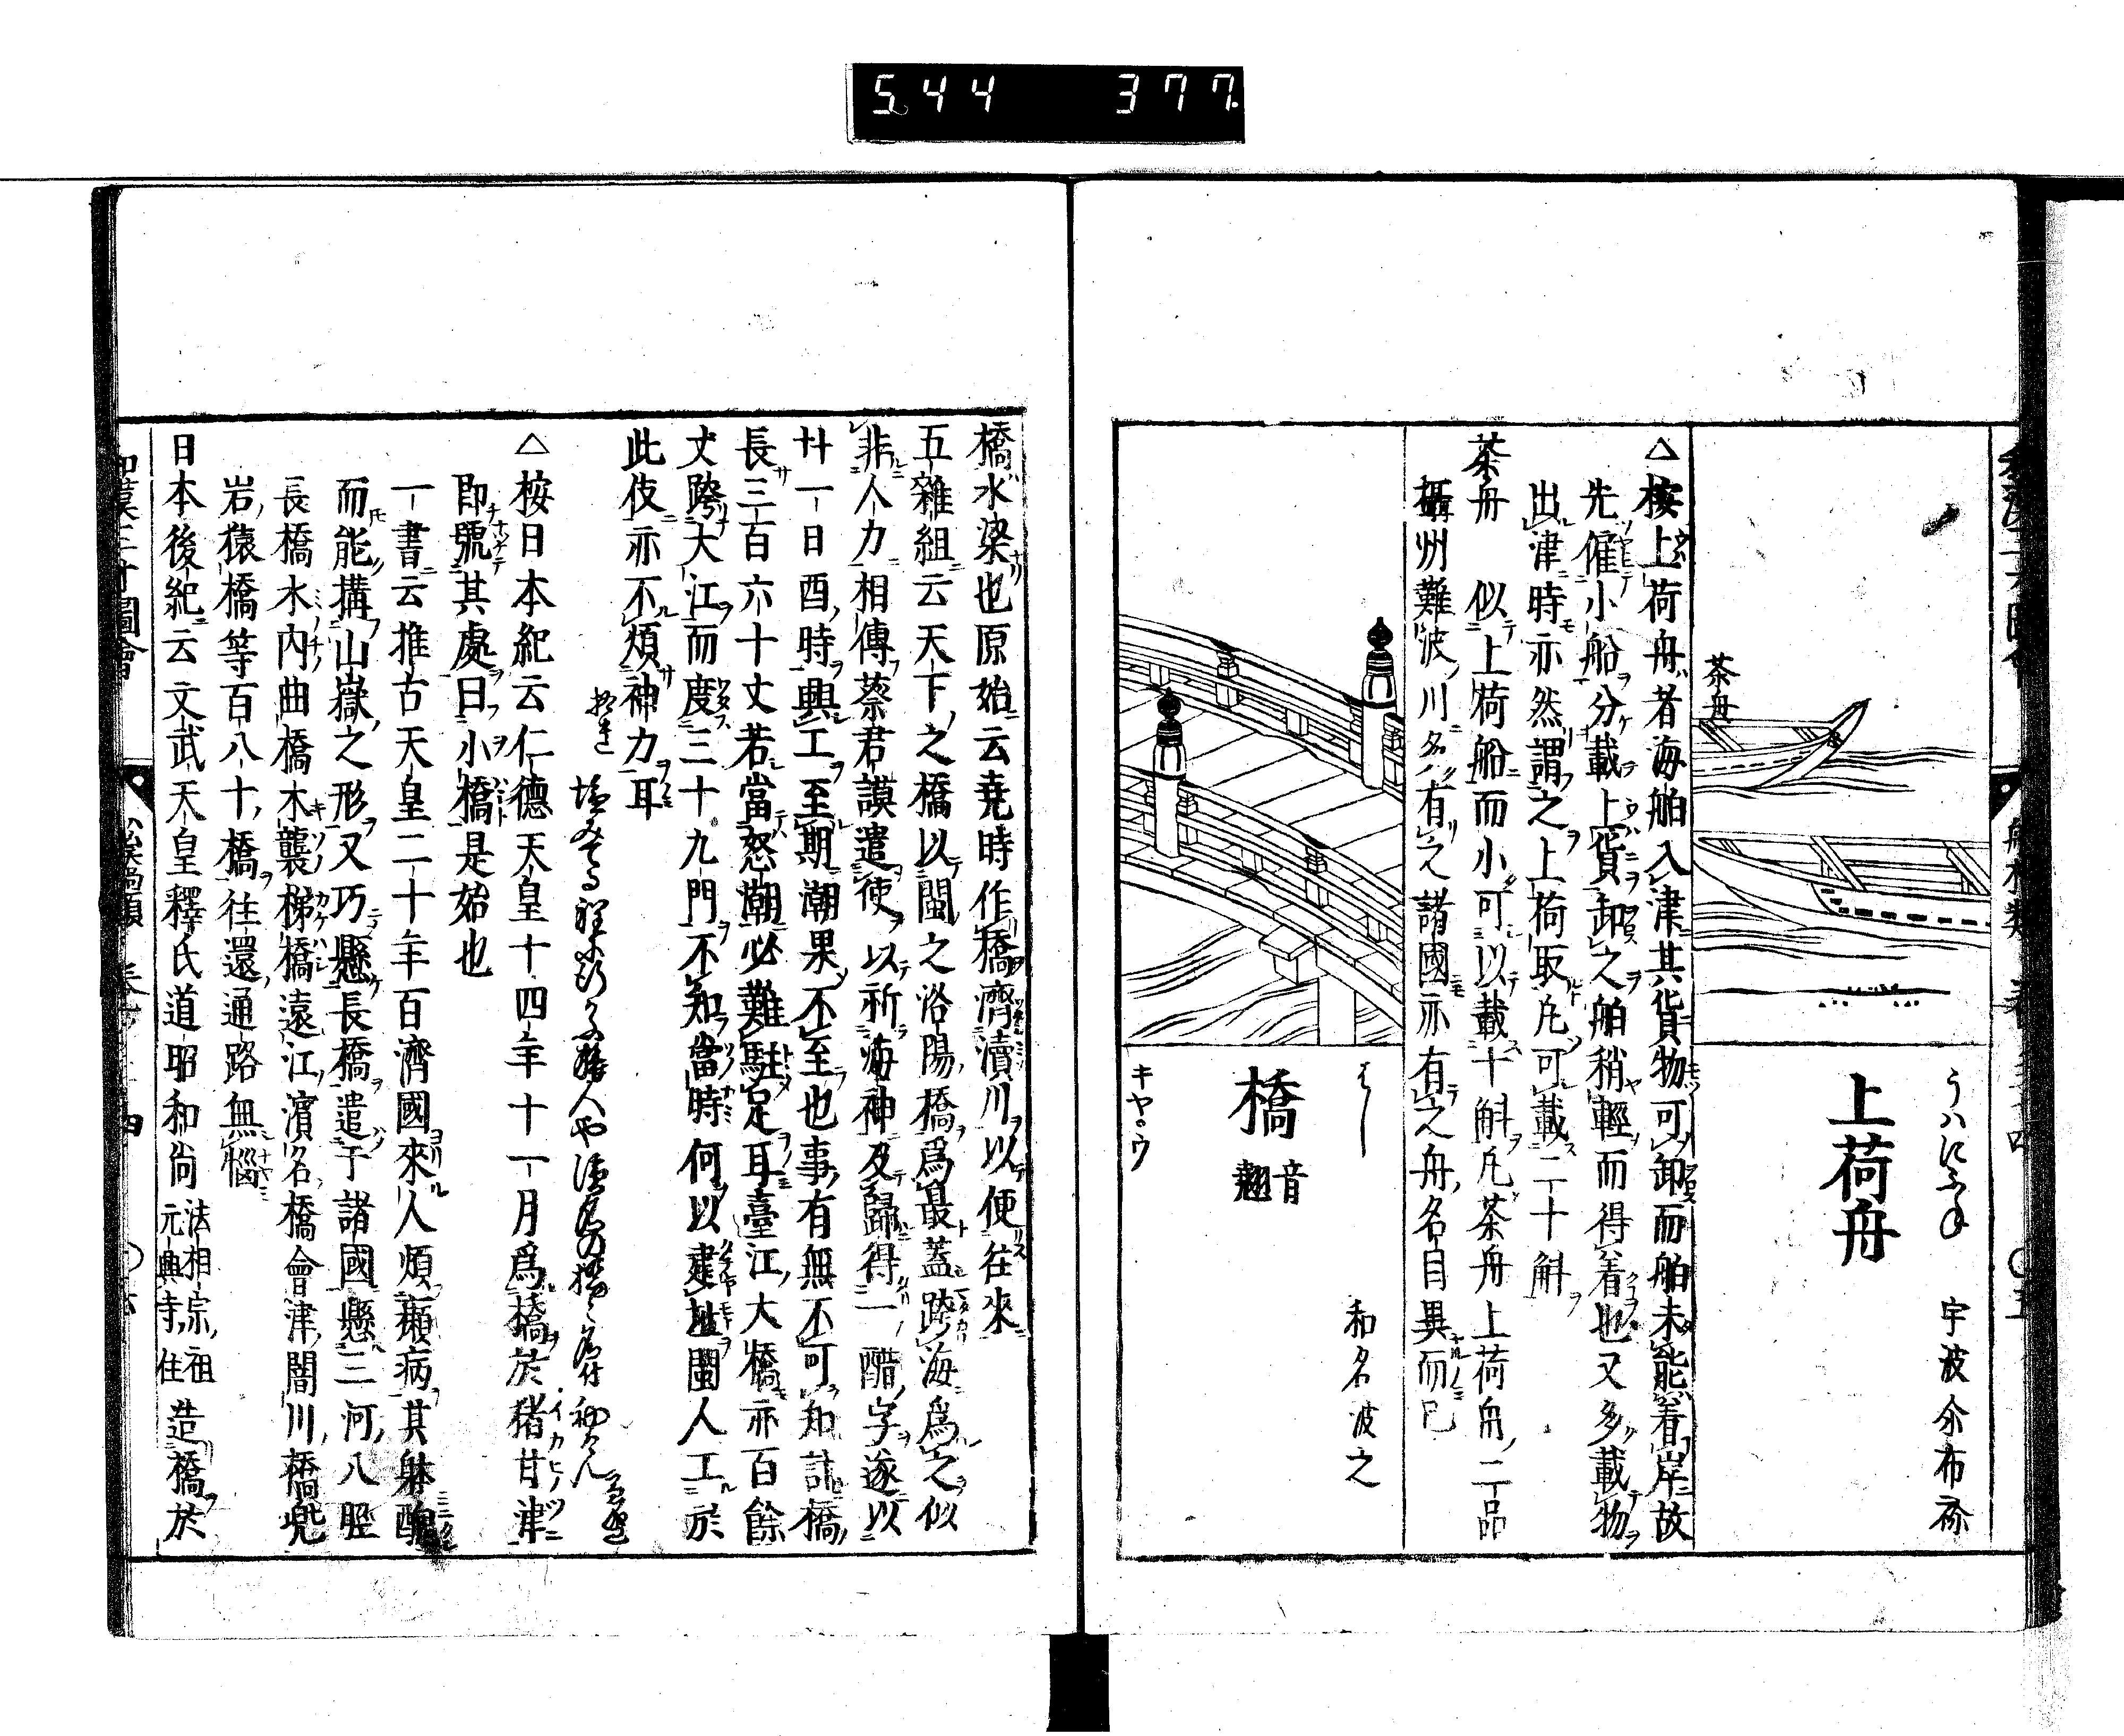 5.44 377.
うハにふね
宇波尓布祢
上荷舟
茶舟
△按上荷舟者海舶入津其貨物可卸而舶未能着岸故
先僱小船分載上貨卸之舶稍輕而得着也又多載物
出津時亦然謂之上荷取凡可載二十斛
茶舟 似上荷船而小可以載十斛凡茶舟上荷舟二品
攝州難波川多有之諸國亦有之舟名目異而已
はし
和名波之
橋
音翹
キヤ○ウ
橋水梁也原始云堯時作橋濟瀆川以便往來
五雜組云天下之橋以閩之洛陽橋爲最蓋跨海爲之似
非人力相傳蔡君謨遣使以祈海神及歸得一醋字遂以
廿一日酉時興工至期潮果不至也事有無不可知計橋
長三百六十丈若當怒潮必難駐足耳臺江大橋亦百餘
丈跨大江而度三十九門不知當時何以建址閩人工於
此伎亦不煩神力耳
△按日本紀云仁德天皇十四年十一月爲橋於猪甘津
即號其處曰小橋是始也
一書云推古天皇二十年百濟國來人煩癩病其躰醜
而能搆山嶽之形又巧懸長橋遣于諸國懸三河八脛
長橋水內曲橋木襲梯橋遠江濱名橋會津闇川橋兜
岩猿橋等百八十橋往還通路無惱
日本後紀云文武天皇釋氏道昭和尚法相宗祖元興寺住造橋於